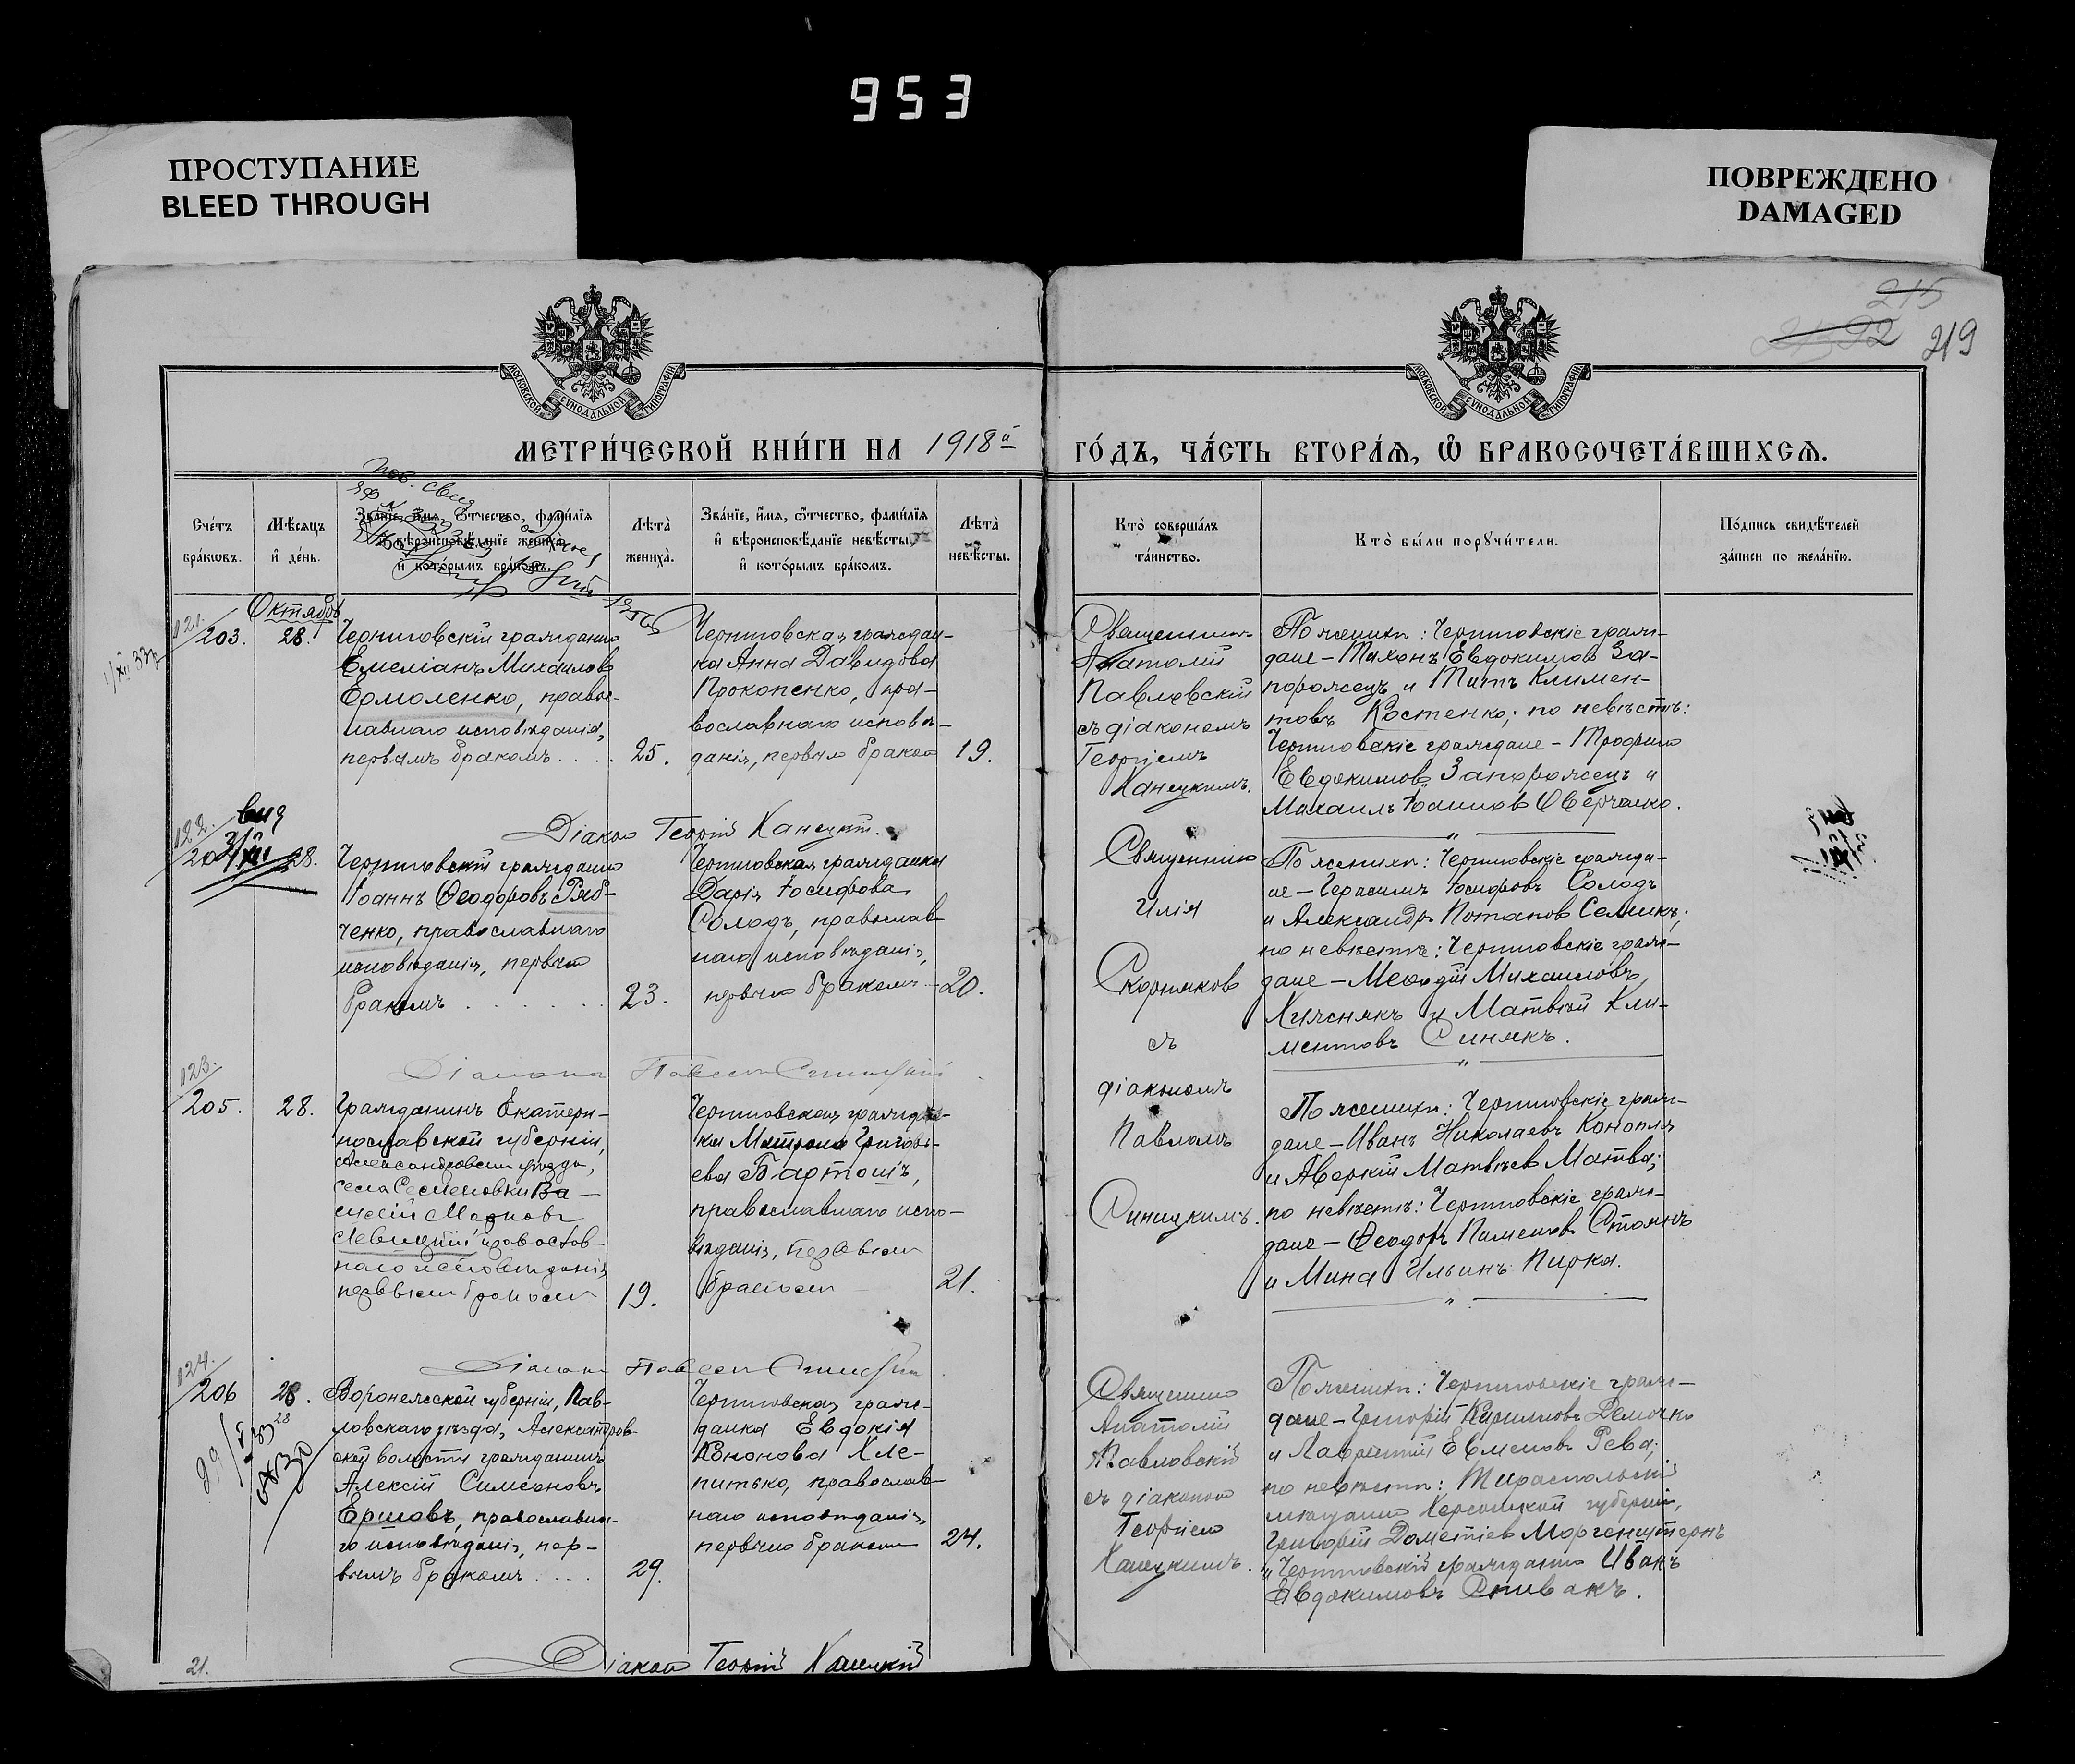 953
ПРОСТУПАНИЕ
BLEED THROUGH
ПОВРЕЖДЕНО
DAMAGED
215
219
МОСКОВСКОЙ СѴНОДАЛЬНОЙ ТИПОГРАФІИ
МОСКОВСКОЙ СѴНОДАЛЬНОЙ ТИПОГРАФІИ
МЕТРИ́ЧЕСКОЙ КНИ́ГИ НА 1918й
ГО́ДЪ, ЧА́СТЬ ВТОРА́Я, Ѽ БРАКОСОЧЕТА́ВШИХСЯ.
Сче́тъ
бра́кωвъ.
Мѣ́сяцъ
и҆ де́нь.
Зва́нїе, и҆́мя, ѻ҆́тчество, фами́лїя
и҆ вѣроисповѣ́данїе жениха̀,
и҆ кото́рымъ бра́комъ.
Лѣ́та
жениха̀.
Зва́нїе, и҆́мя, ѻ҆́тчество, фами́лїя
и҆ вѣроисповѣ́данїе невѣ́сты,
и҆ кото́рымъ бра́комъ.
Лѣ́та
невѣ́сты.
Кто̀ соверша́лъ
та́инство.
Кто̀ бы́ли порꙋчи́тели.
По́дпись свидѣ́телей
за́писи по жела́нїю.
Октябрь
121.
203.
28.
Черниговскій гражданинъ
Емеліанъ Михаиловъ
Ермоленко, правос-
лавнаго исповѣданія,
первымъ бракомъ . . . .
25.
Черниговская граждан-
ка Анна Давидова
Прокопенко, пра-
вославнаго исповѣ-
данія, первымъ бракомъ
19.
Священникъ
Анатолій
Павловскій
съ діакономъ
Георгіемъ
Канецкимъ.
По женихѣ: Черниговскіе граж-
дане – Тихонъ Евдокимовъ За-
порожецъ и Титъ Климен-
товъ Костенко; по невѣстѣ:
Черниговскіе граждане – Трофимъ
Евдокимовъ Запорожецъ и
Михаилъ Іоанновъ Оверченко.
Діаконъ Георгій Канецкій.
122.
28.
Черниговскій гражданинъ
Іоаннъ Ѳеодоровъ Ряб-
ченко, православнаго
исповѣданія, первымъ
бракомъ . . . . . . .
23.
Черниговская гражданка
Дарія Іосифова
Солодъ, православ-
наго исповѣданія,
первымъ бракомъ
20.
Священникъ
Илія
Скорняковъ
съ
діакономъ
Павломъ
Синицкимъ.
По женихѣ: Черниговскіе гражда-
не – Герасимъ Іосифовъ Солодъ
и Александръ Потаповъ Семикъ;
по невѣстѣ: Черниговскіе граж-
дане – Меѳодій Михаиловъ
Хижнякъ и Матвѣй Кли-
ментовъ Синякъ.
Діаконъ Павелъ Синицкій
123.
205.
28.
Гражданинъ Екатери-
нославской губерніи,
Александровскаго уѣзда,
села Семеновки Ва-
силій Марковъ
Левицкій православ-
наго исповѣданія
первымъ бракомъ
19.
Черниговская граждан-
ка Матрона Григорь-
ева Бартошъ,
православнаго испо-
вѣданія, первымъ
бракомъ
21.
По женихѣ: Черниговскіе граж-
дане – Иванъ Николаевъ Конопля
и Аверкій Матвѣевъ Матва;
по невѣстѣ: Черниговскіе граж-
дане – Ѳеодоръ Стоянъ
и Мина Ильинъ Пирка.
Діаконъ Павелъ Синицкій
124.
206
28.
Воронежской губерніи, Пав-
ловскаго уѣзда, Александров-
ской волости гражданинъ
Алексій Симеоновъ
Ершовъ, православна-
го исповѣданія, пер-
вымъ бракомъ . . . .
29.
Черниговская граж-
данка Евдокія
Кононова Хле-
питько, православ-
наго исповѣданія,
первымъ бракомъ
24.
Священникъ
Анатолій
Павловскій
съ діакономъ
Георгіемъ
Канецкимъ.
По женихѣ: Черниговскіе граж-
дане – Григорій Кирилловъ Демочко
и Лаврентій Евменовъ Рева;
по невѣстѣ: Тираспольскій
мѣщанинъ Херсонской губерніи,
Григорій Дометіевъ Моргенштернъ
и Черниговскій гражданинъ Иванъ
Евдокимовъ Спивакъ.
Діаконъ Георгій Канецкій
21.